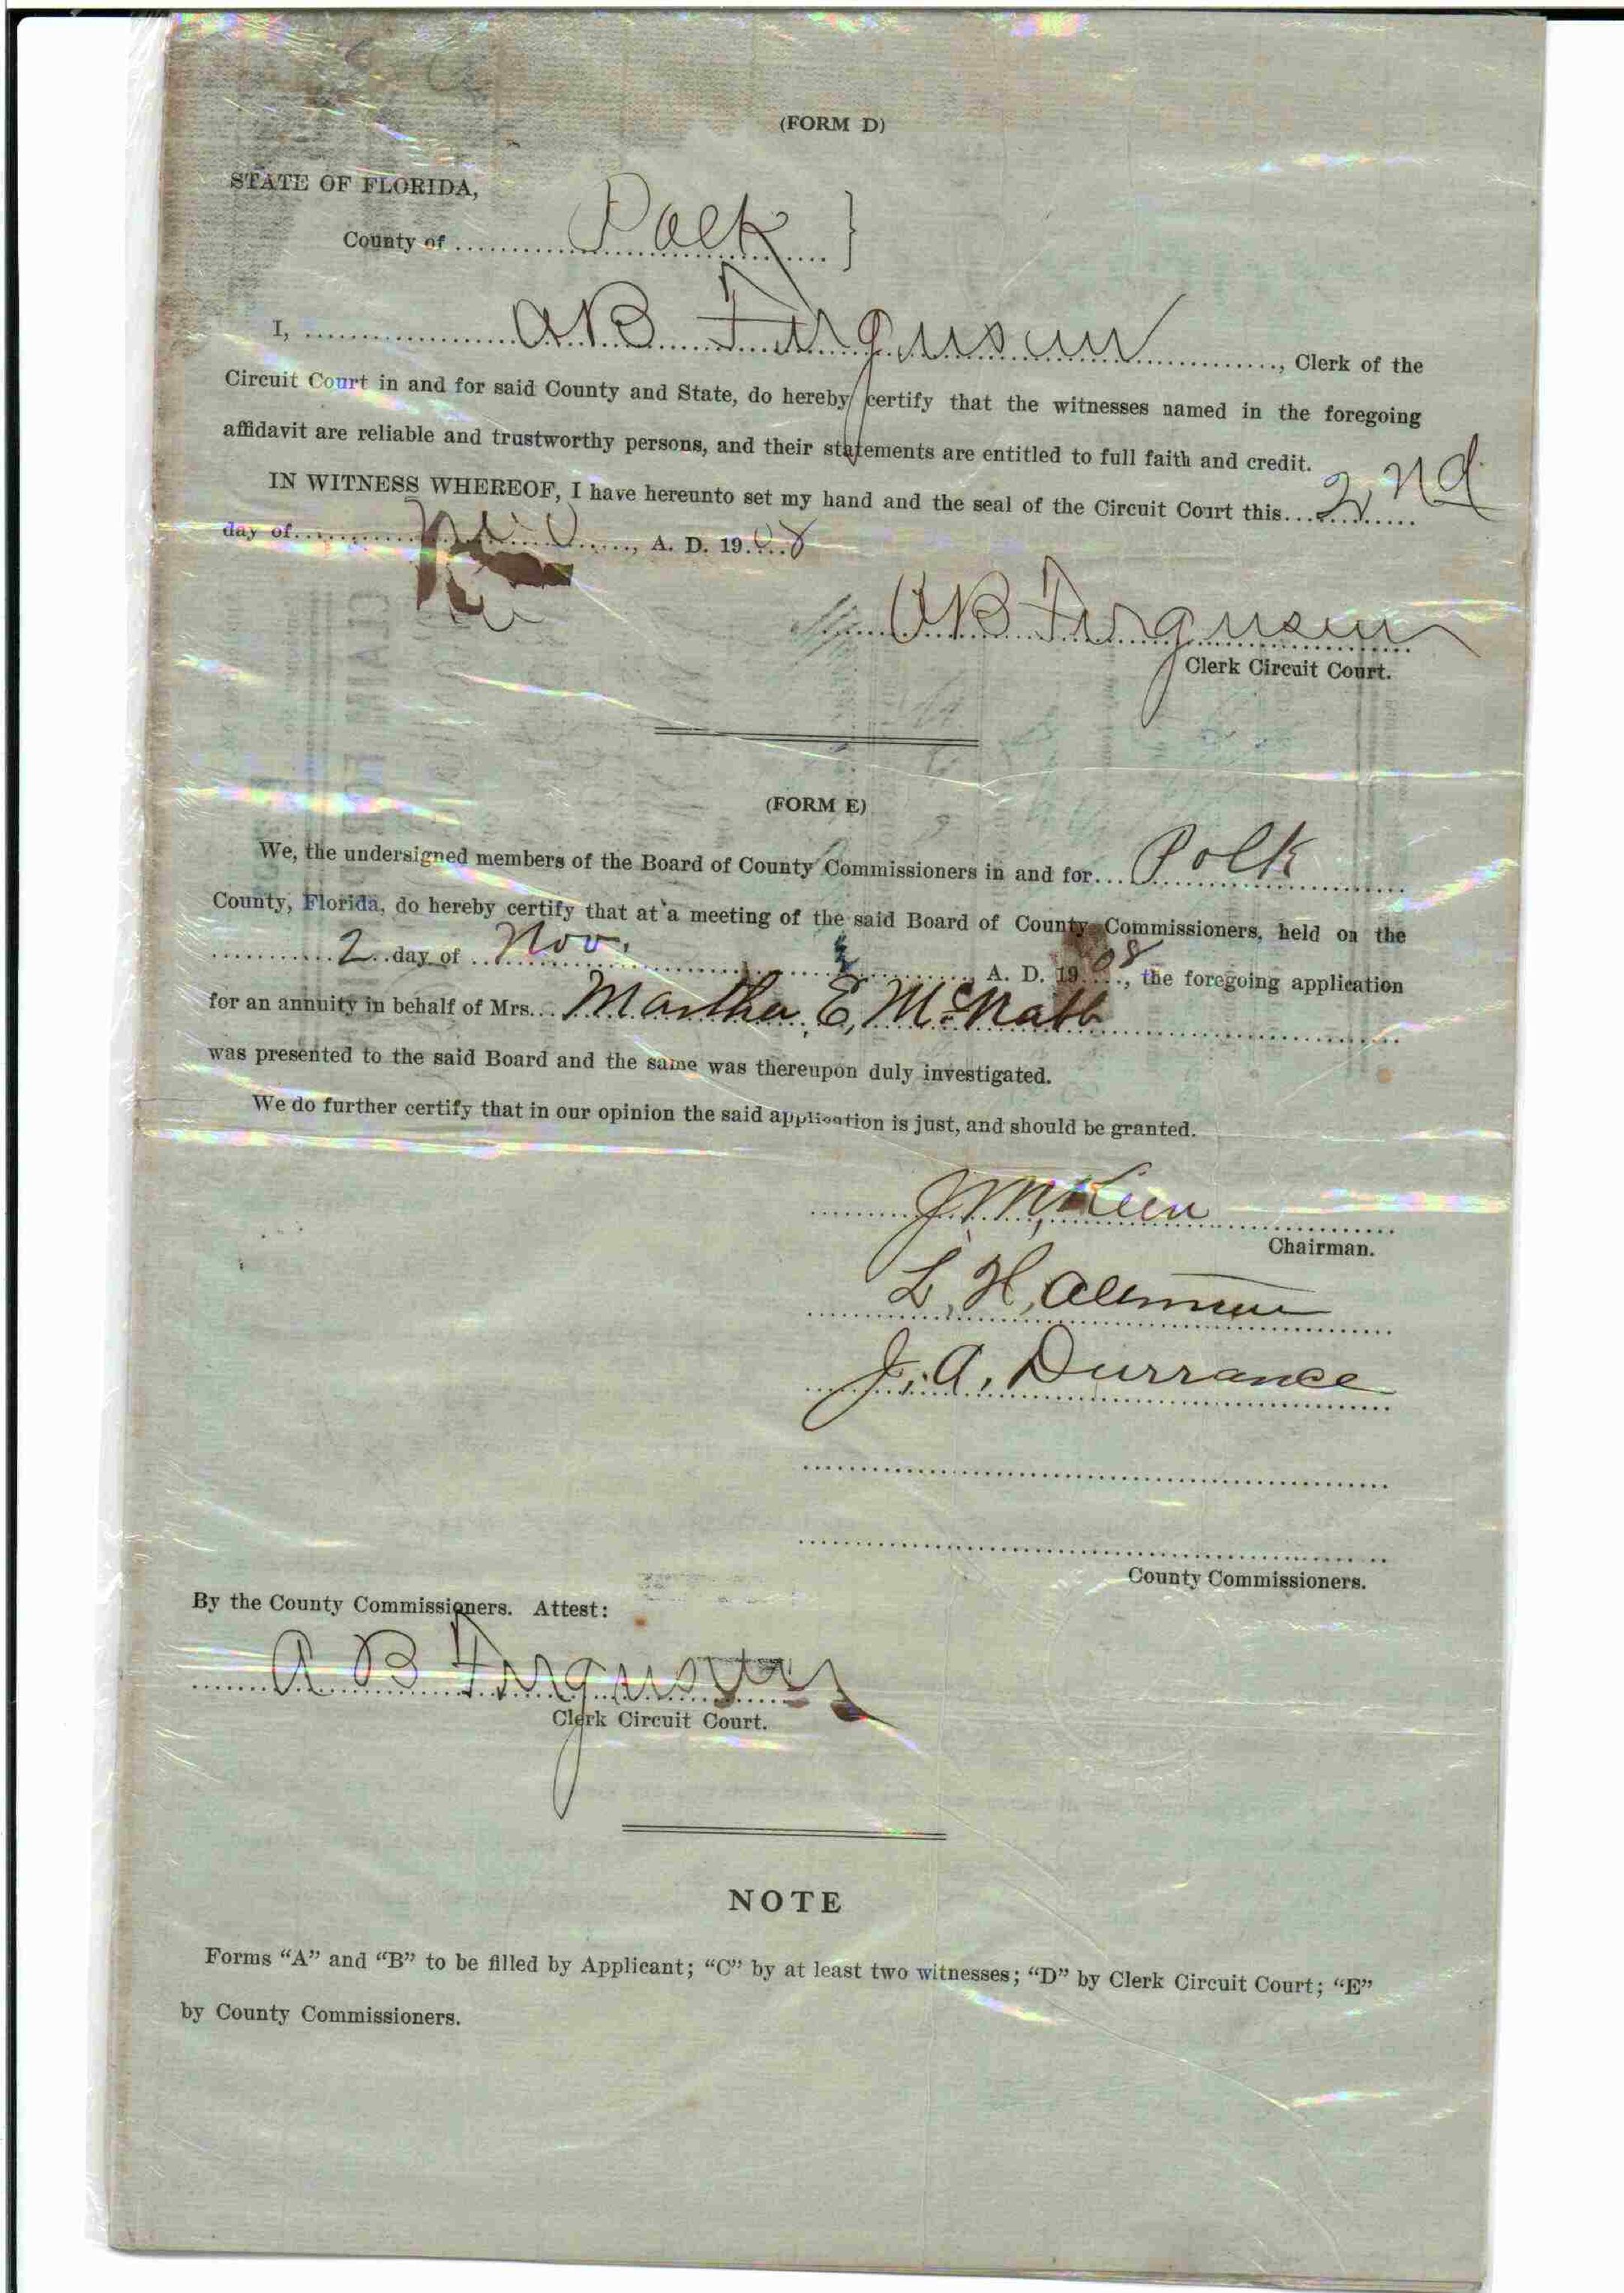 (FORM D)
STATE OF FLORIDA,
County of Polk }
I, A B Ferguson, Clerk of the
Circuit Court in and for said County and State, do hereby certify that the witnesses named in the foregoing
affidavit are reliable and trustworthy persons, and their statements are entitled to full faith and credit.
IN WITNESS WHEREOF, I have hereunto set my hand and the seal of the Circuit Court this 2nd
day of Nov, A. D. 1908
A B Ferguson
Clerk Circuit Court.
(FORM E)
We, the undersigned members of the Board of County Commissioners in and for Polk
County, Florida, do hereby certify that at a meeting of the said Board of County Commissioners, held on the
2 day of Nov. A. D. 1908, the foregoing application
for an annuity in behalf of Mrs. Martha E. McNabb
was presented to the said Board and the same was thereupon duly investigated.
We do further certify that in our opinion the said application is just, and should be granted.
J. M. Keen
Chairman.
L. H.
J. A. Durrance
County Commissioners.
By the County Commissioners. Attest:
A B Ferguson
Clerk Circuit Court.
NOTE
Forms “A” and “B” to be filled by Applicant; “C” by at least two witnesses; “D” by Clerk Circuit Court; “E”
by County Commissioners.